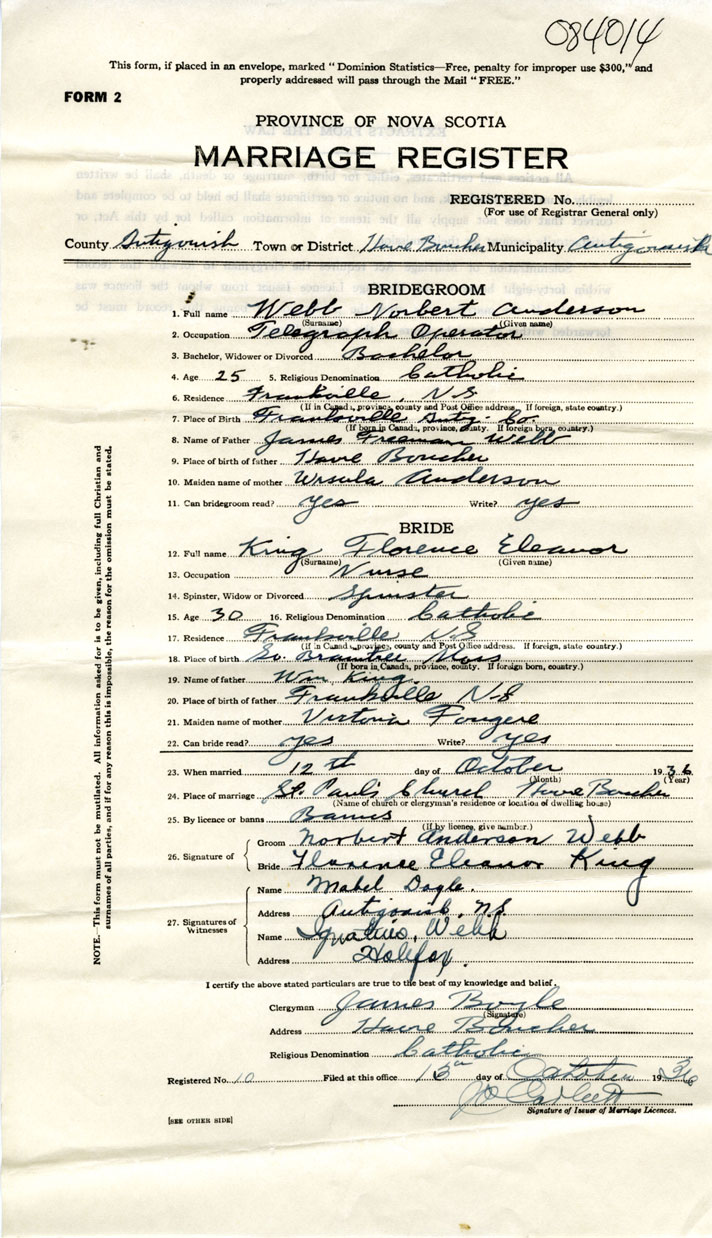 084014
This form, if placed in an envelope, marked "Dominion Statistics—Free, penalty for improper use $300," and
properly addressed will pass through the Mail "FREE."
FORM 2
PROVINCE OF NOVA SCOTIA
MARRIAGE REGISTER
REGISTERED No.
(For use of Registrar General only)
County Antigonish Town or District Havre Boucher Municipality Antigonish
BRIDEGROOM
1. Full name Webb Norbert Anderson
(Surname) (Given name)
2. Occupation Telegraph Operator
3. Bachelor, Widower or Divorced Bachelor
4. Age 25 5. Religious Denomination Catholic
6. Residence Frankville, N S
(If in Canada, province, county and Post Office address. If foreign, state country.)
7. Place of Birth Franksville Antig Co.
(If born in Canada, province, county. If foreign born, country.)
8. Name of Father James Freeman Webb
9. Place of birth of father Havre Boucher
10. Maiden name of mother Ursula Anderson
11. Can bridegroom read? yes Write? yes
BRIDE
12. Full name King Florence Eleanor
(Surname) (Given name)
13. Occupation Nurse
14. Spinster, Widow or Divorced Spinster
15. Age 30 16. Religious Denomination Catholic
17. Residence Franksville N.S
(If in Canada, province, county and Post Office address. If foreign, state country.)
18. Place of birth So. Braintree Mass
(If born in Canada, province, county. If foreign born, country.)
19. Name of father Wm King.
20. Place of birth of father Frankville N.S
21. Maiden name of mother Victoria Fougere
22. Can bride read? yes Write? yes
23. When married 12th day of October 1936
(Month) (Year)
24. Place of marriage St. Paul's Church Havre Boucher
(Name of church or clergyman's residence or location of dwelling house)
25. By licence or banns Banns
(If by licence, give number.)
26. Signature of
Groom Norbert Anderson Webb
Bride Florence Eleanor King
27. Signatures of Witnesses
Name Mabel Doyle.
Address Antigonish, N.S.
Name Ignatius Webb
Address Halifax.
I certify the above stated particulars are true to the best of my knowledge and belief.
Clergyman James Boyle
(Signature)
Address Havre Boucher
Religious Denomination Catholic
Registered No. 10 Filed at this office day of October 1936
Signature of Issuer of Marriage Licences.
[SEE OTHER SIDE]
NOTE. This form must not be mutilated. All information asked for is to be given, including full Christian and
surnames of all parties, and if for any reason this is impossible, the reason for the omission must be stated.